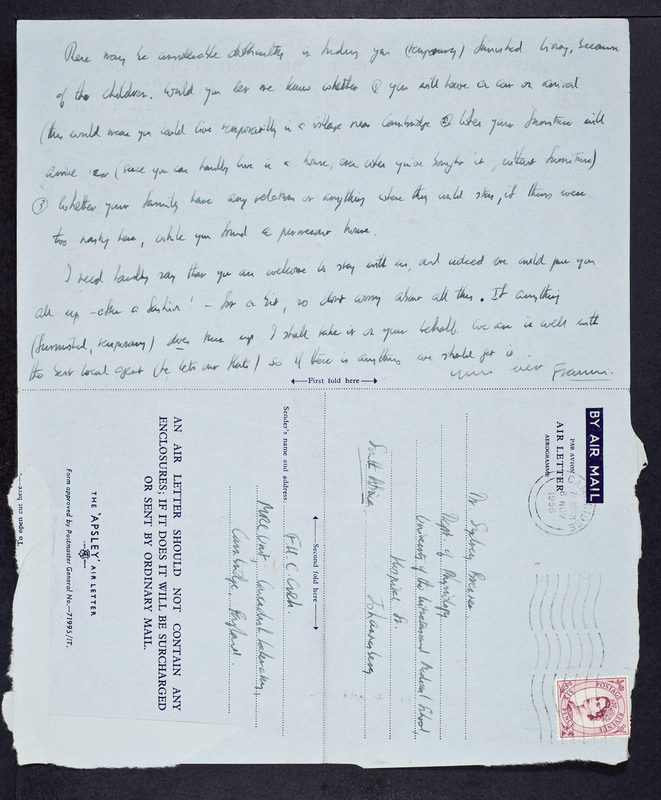 There may be considerable difficulty in finding you (temporary) furnished living, because
of the children. Would you let me know whether ① you will have a car on arrival
(this would mean you could live temporarily in a village near Cambridge ② When your furniture will
arrive (since you can hardly live in a house, even when you've bought it, without furniture)
③ Whether your family have any relations or anything where they could stay, if things were
too nasty here, while you found a permanent house.
I need hardly say that you are welcome to stay with us, and indeed we could put you
all up – after a fashion! – for a bit, so don't worry about all this. If anything
(furnished, temporary) does turn up I shall take it on your behalf. We are in well with
the best local agent (he lets our flats) so if there is anything we should get it.
yours ever Francis.
First fold here
BY AIR MAIL
PAR AVION
AIR LETTER
AEROGRAMME
NOV
1956
POSTAGE
REVENUE
SIXPENCE
Dr Sydney Brenner
Dept. of Physiology
University of the Witwatersrand Medical School,
Hospital St.
Johannesburg
South Africa
Second fold here
Sender's name and address:
F.H.C. Crick.
MRC Unit, Cavendish Laboratory,
Cambridge. England.
AN AIR LETTER SHOULD NOT CONTAIN ANY
ENCLOSURES; IF IT DOES IT WILL BE SURCHARGED
OR SENT BY ORDINARY MAIL.
THE 'APSLEY' AIR LETTER
Form approved by Postmaster General No.—71995/1T.
To open cut here